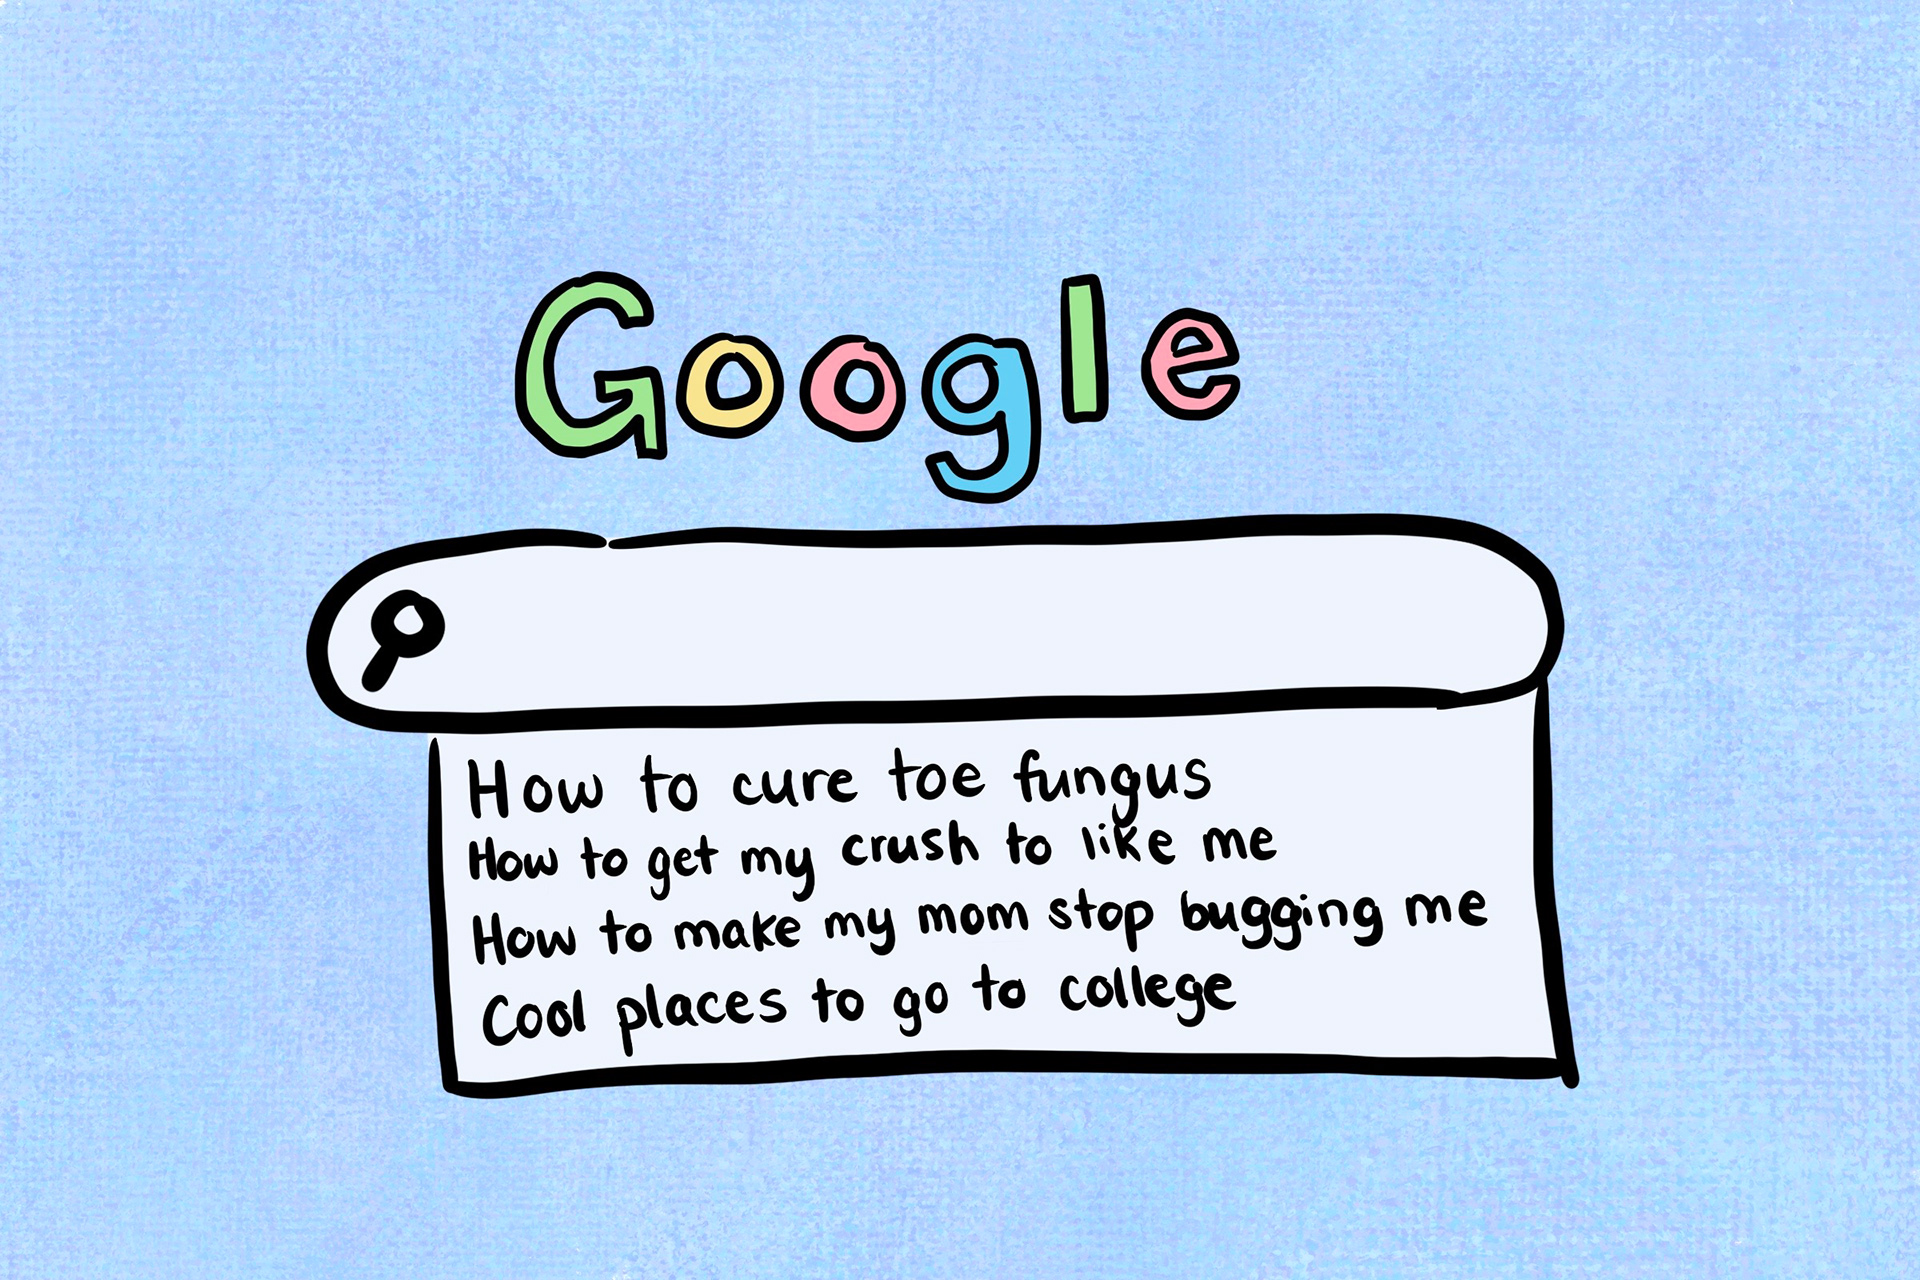 Google
How to cure toe fungus
How to get my crush to like me
How to make my mom stop bugging me
Cool places to go to college